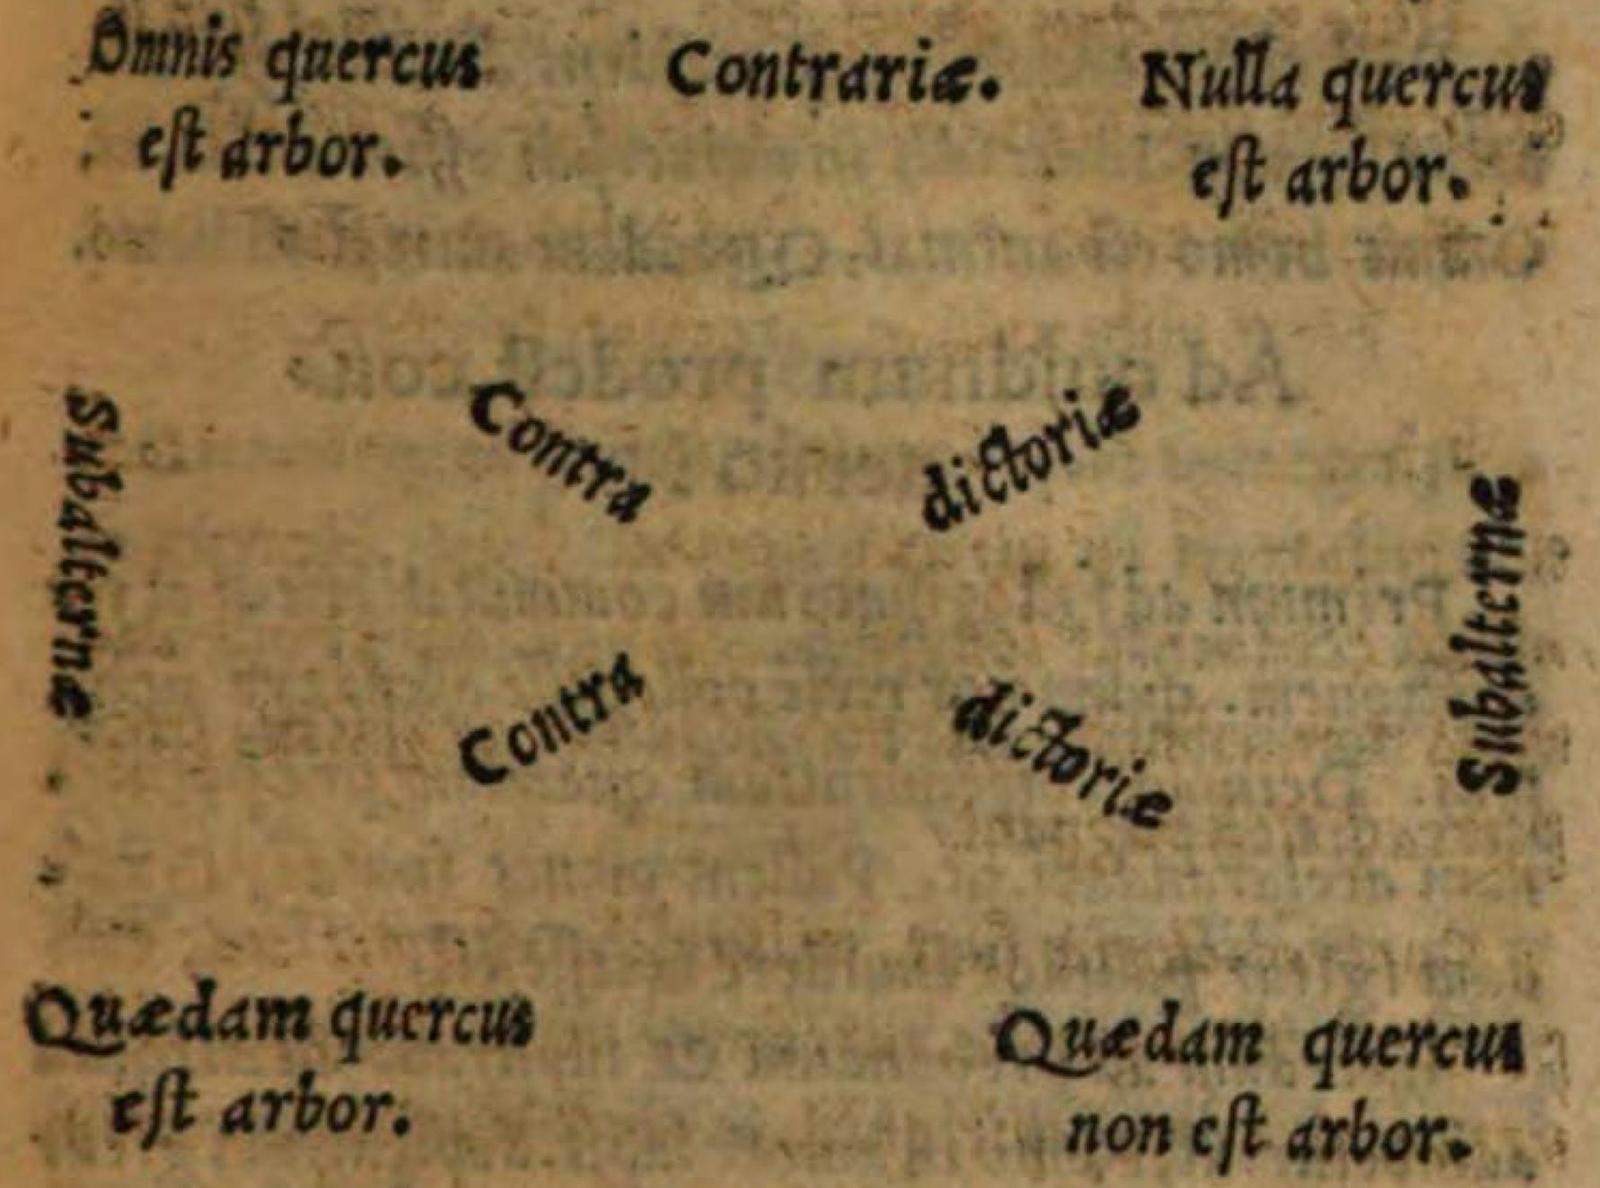 Omnis quercus
est arbor.
Contrariæ.
Nulla quercus
est arbor.
Subalternæ
Contra
dictoriæ
Subalternæ
Contra
dictoriæ
Quædam quercus
est arbor.
Quædam quercus
non est arbor.